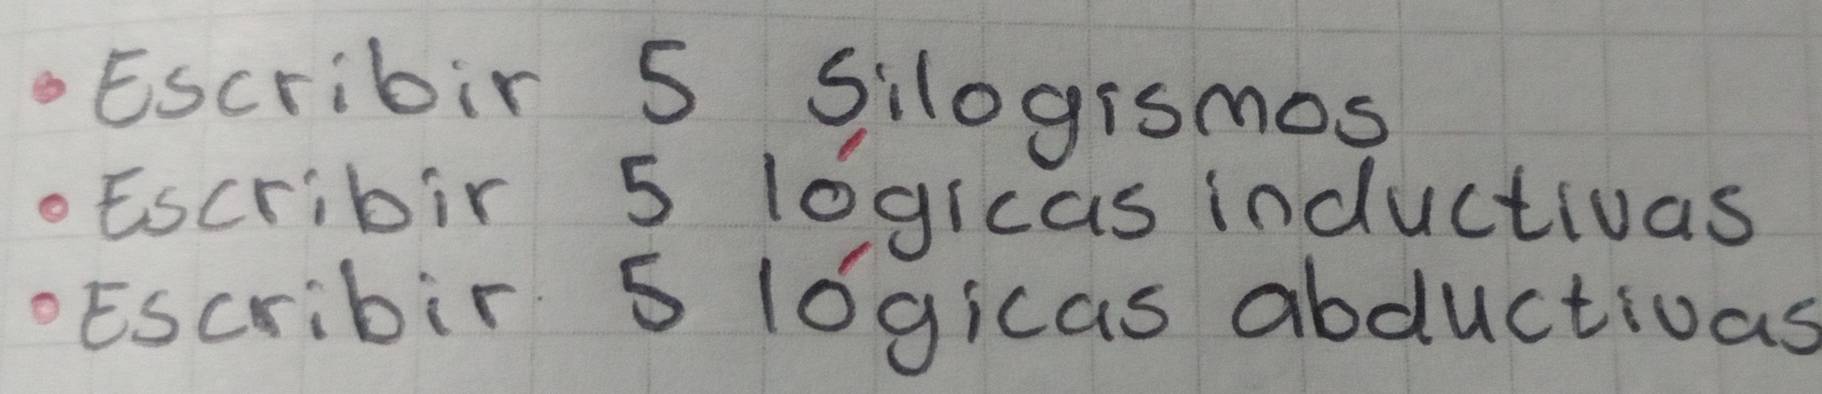 • Escribir 5 Silogismos
• Escribir 5 lógicas inductivas
• Escribir 5 lógicas abductivas